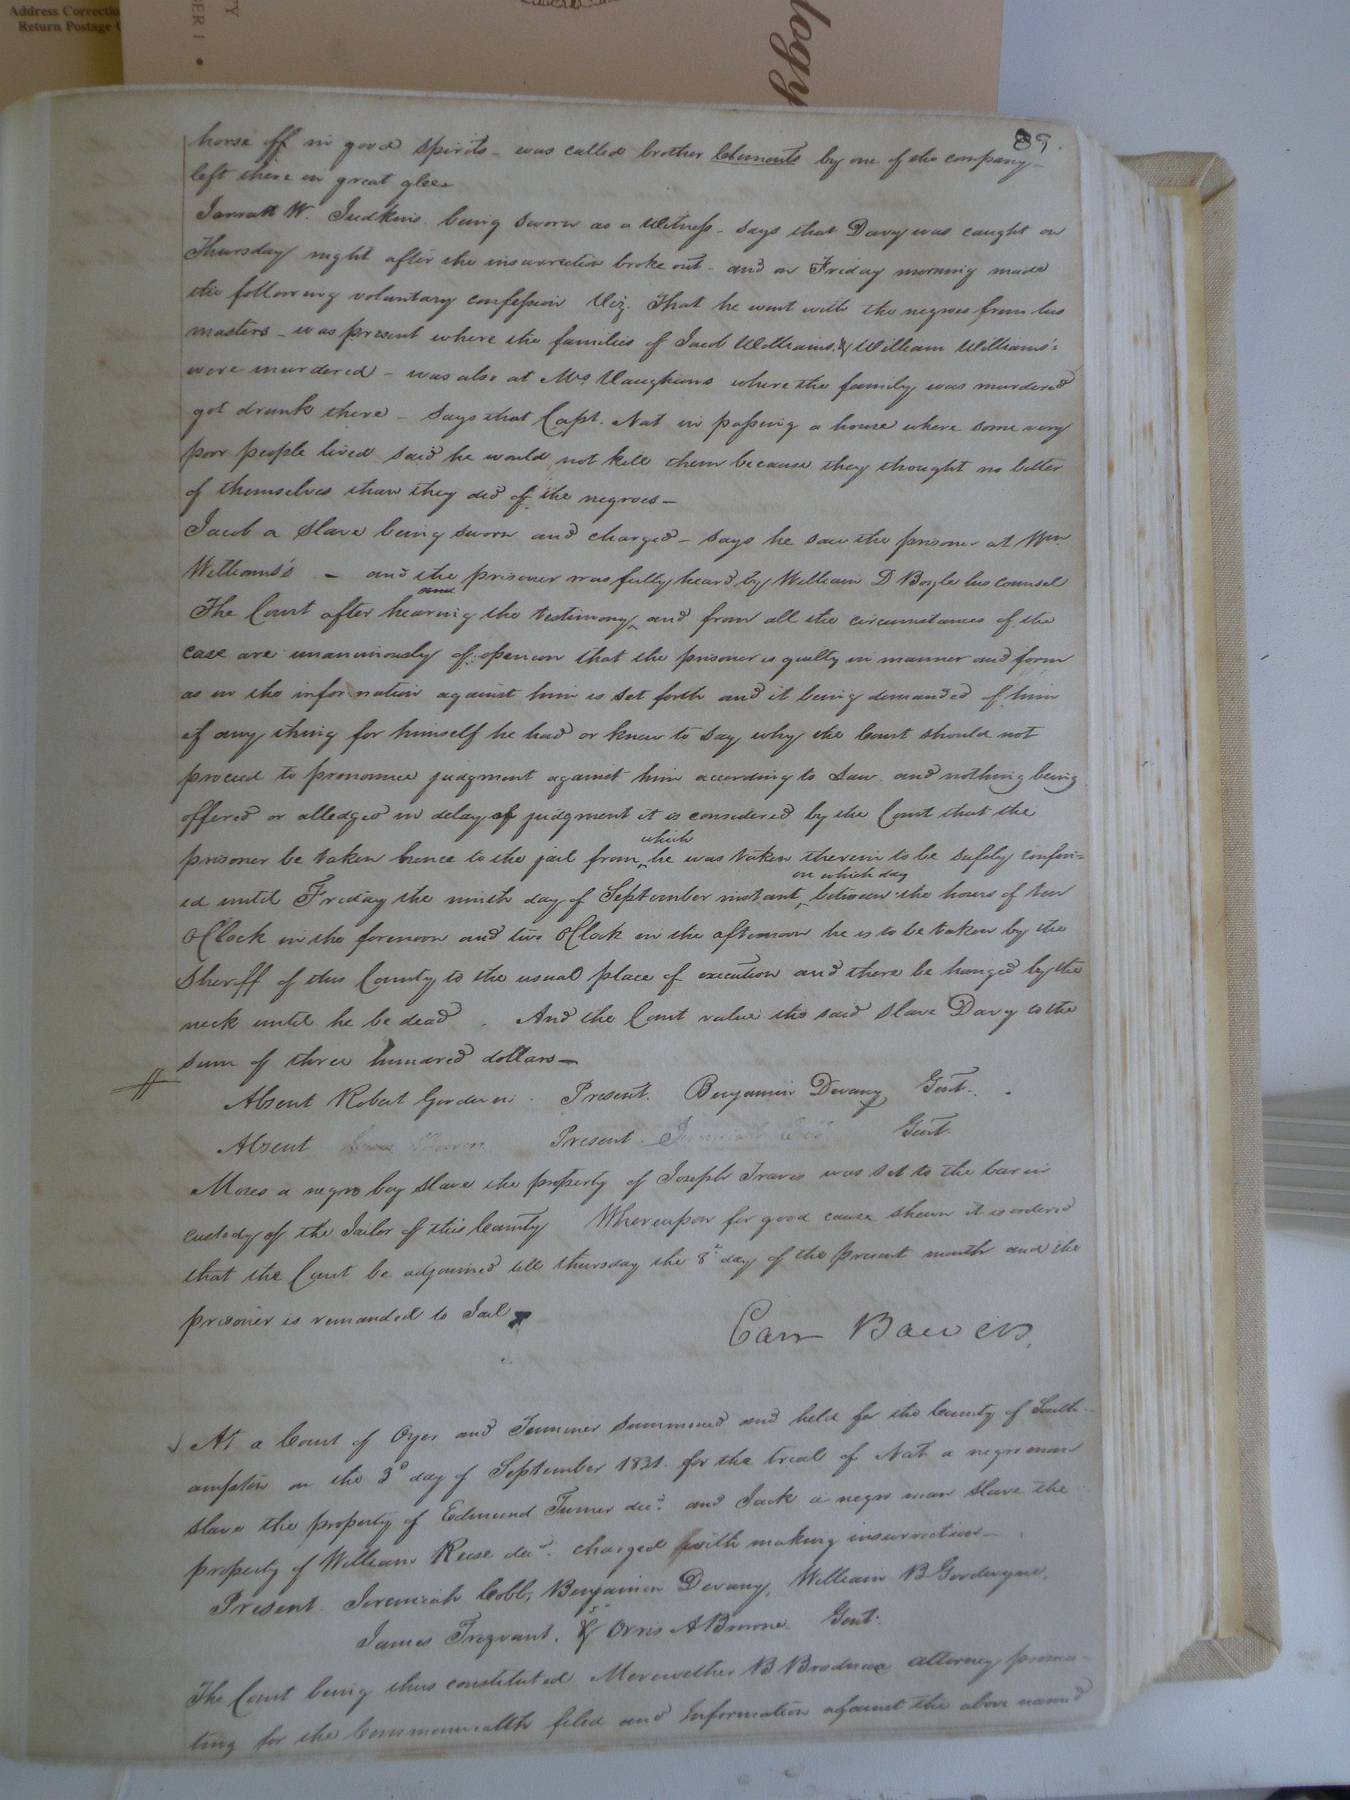 Address Correctio
Return Postage G
TY
BER 1 •
logy
89.
horse off in good spirits – was called brother Clements by one of the company –
left there in great glee
Jarratt W. Judkins being sworn as a witness – says that Davy was caught on
Thursday night after the insurrection broke out – and on Friday morning made
the following voluntary confession Viz. That he went with the negroes from his
masters – was present where the families of Jacob Williams & William Williams's
were murdered – was also at Mrs Vaughans where the family was murdered
got drunk there – says that Capt. Nat in passing a house where some very
poor people lived said he would not kill them because they thought no better
of themselves than they did of the negroes –
Jacob a slave being sworn and charged – says he saw the prisoner at Wm
Williams's – and the prisoner was fully heard by William D Boyle his counsel
The Court after hearing the testimony and from all the circumstances of the
case are unanimously of opinion that the prisoner is guilty in manner and form
as in the information against him is set forth and it being demanded of him
if any thing for himself he had or knew to say why the Court should not
proceed to pronounce judgment against him according to Law and nothing being
offered or alledged in delay of judgment it is considered by the Court that the
prisoner be taken hence to the jail from which he was taken therein to be safely confin=
ed until Friday the ninth day of September instant, on which day between the hours of ten
OClock in the forenoon and two OClock in the afternoon he is to be taken by the
Sheriff of this County to the usual place of execution and there be hanged by the
neck until he be dead . And the Court value the said slave Davy to the
sum of three hundred dollars –
Absent Robert Goodwin . Present. Benjamin Devany Gent. .
Absent Present Gent.
Moses a negro boy slave the property of Joseph Travis was set to the bar in
custody of the Jailor of this County Whereupon for good cause shewn it is ordered
that the Court be adjourned till thursday the 8th day of the present month and the
prisoner is remanded to Jail
Carr Bowers,
At a Court of Oyer and Terminer summoned and held for the County of South-
ampton on the 3d day of September 1831 for the trial of Nat a negro man
slave the property of Edmund Turner decd. and Jack a negro man slave the
property of William Reese decd. charged with making insurrection –
Present. Jeremiah Cobb, Benjamin Devany, William B Goodwyn,
James Trezvant, & Orris A Browne Gent.
The Court being thus constituted Meriwether B Brodnax attorney prosecu-
ting for the Commonwealth filed and Information against the above named